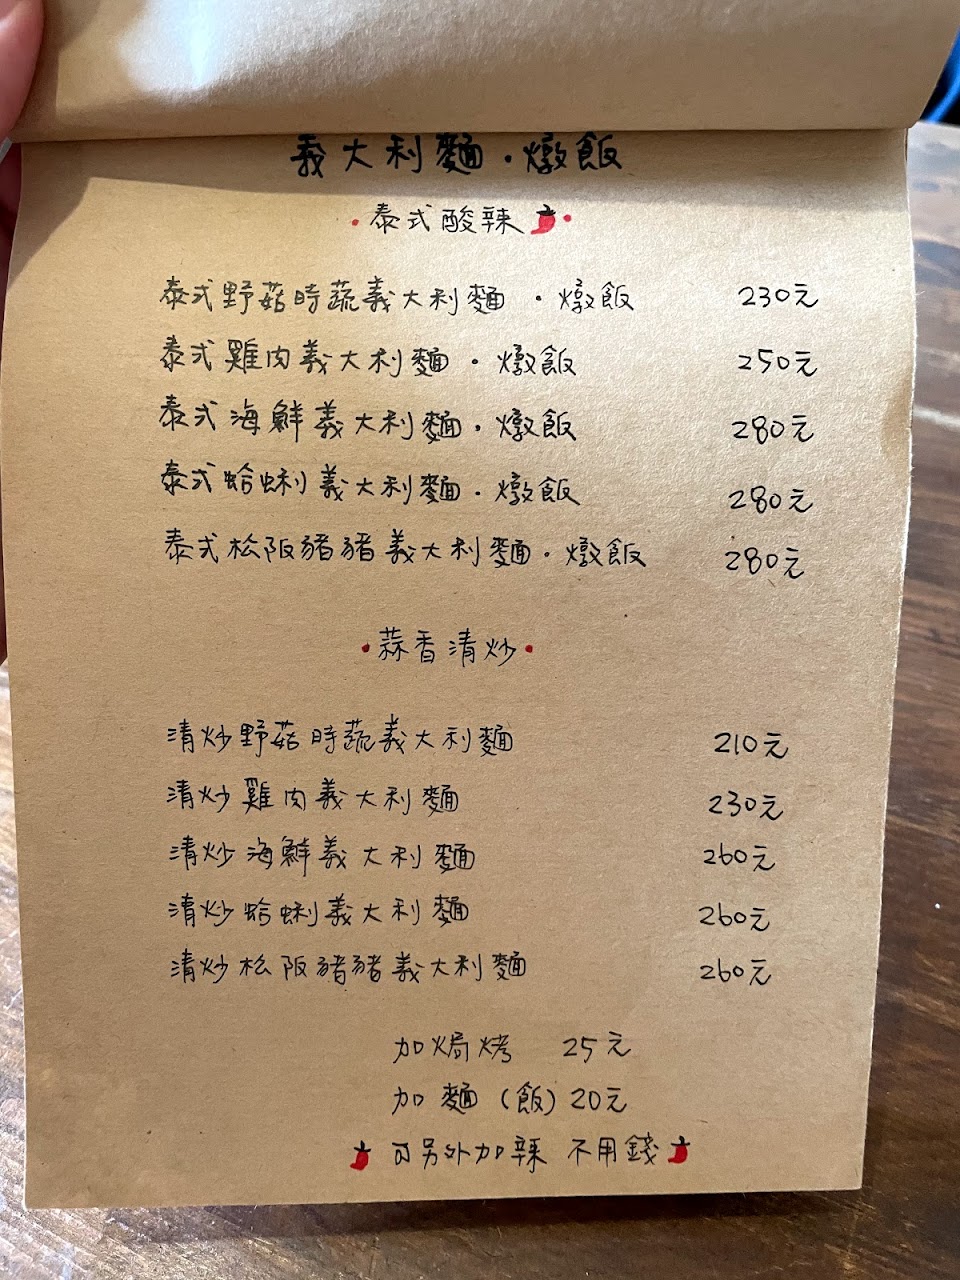 義大利麵・燉飯
・泰式酸辣・
泰式野菇時蔬義大利麵・燉飯 230元
泰式雞肉義大利麵・燉飯 250元
泰式海鮮義大利麵・燉飯 280元
泰式蛤蜊義大利麵・燉飯 280元
泰式松阪豬豬義大利麵・燉飯 280元
・蒜香清炒・
清炒野菇時蔬義大利麵 210元
清炒雞肉義大利麵 230元
清炒海鮮義大利麵 260元
清炒蛤蜊義大利麵 260元
清炒松阪豬豬義大利麵 260元
加焗烤 25元
加麵(飯)20元
可另外加辣 不用錢